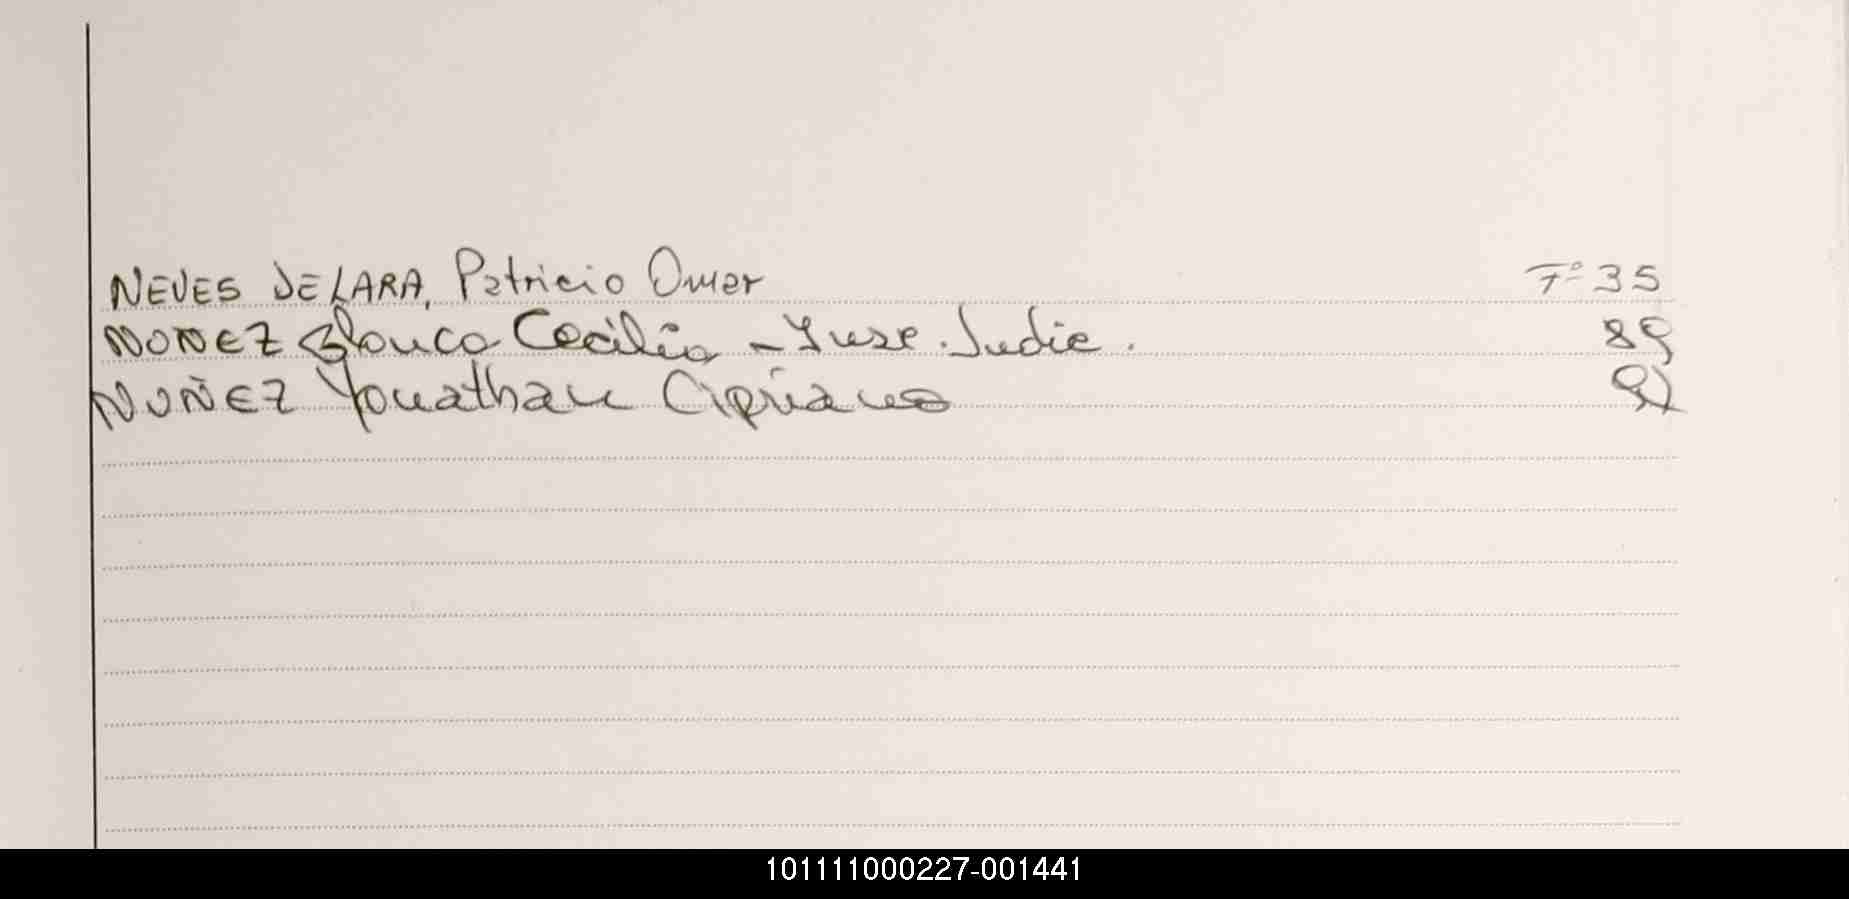 NEVES DE LARA, Patricio Omar F° 35
NUÑEZ Blanca Cecilia - Judic. 89
NUÑEZ Yonathan Cipriano
101111000227-001441